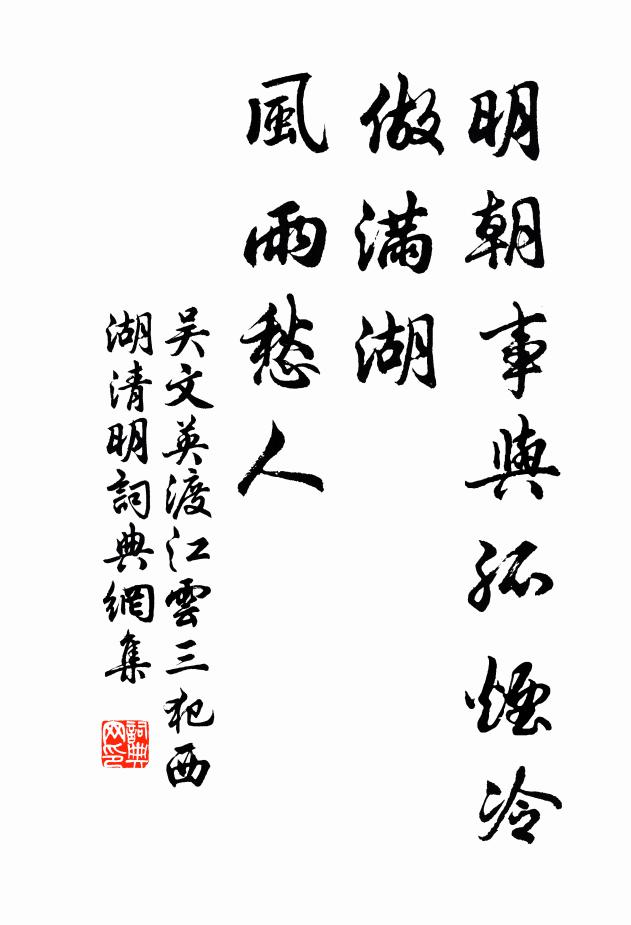 明朝事與孤煙冷
做滿湖
風雨愁人
吴文英渡江雲三犯西
湖清明詞典網集
詞典
网印